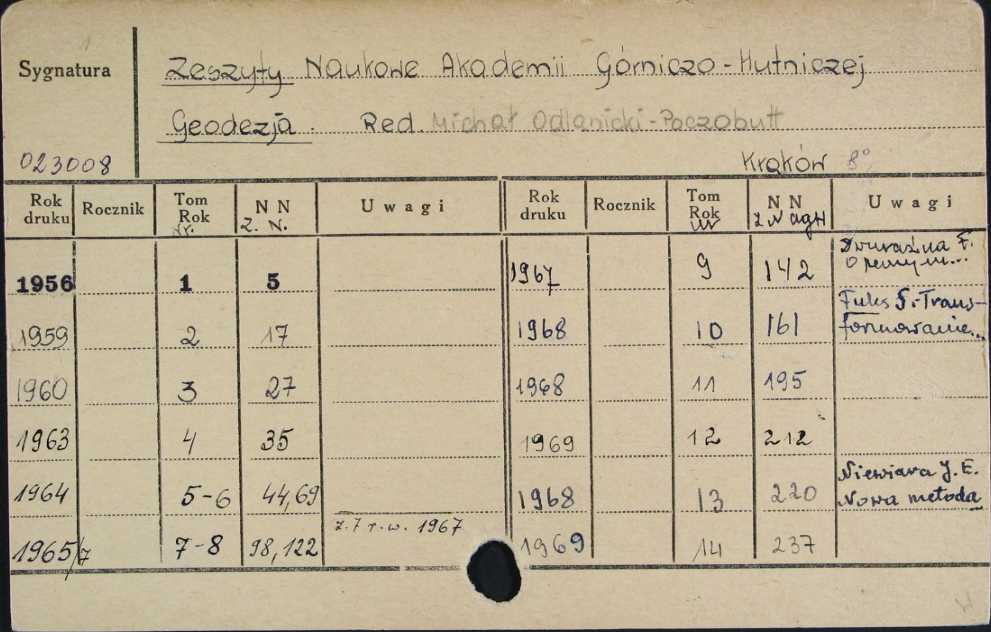 Sygnatura
Zeszyty Naukowe Akademii Górniczo-Hutniczej
Geodezja. Red Michał Odlanicki-Poczobutt
023008 Kraków 8°
Rok druku Rocznik Tom Rok Nr. N N Z. N. Uwagi Rok druku Rocznik Tom Rok nr N N Z N AGH Uwagi
1956 1 5 1967 9 142 F. O pewnym...
1959 2 17 1968 10 161 Fuks S. Transformowanie...
1960 3 27 1968 11 195
1963 4 35 1969 12 212
1964 5-6 44,69 1968 13 220 Niewiara J. E. Nowa metoda
1965/7 7-8 98,122 z. 7 r. w. 1967 1969 14 237